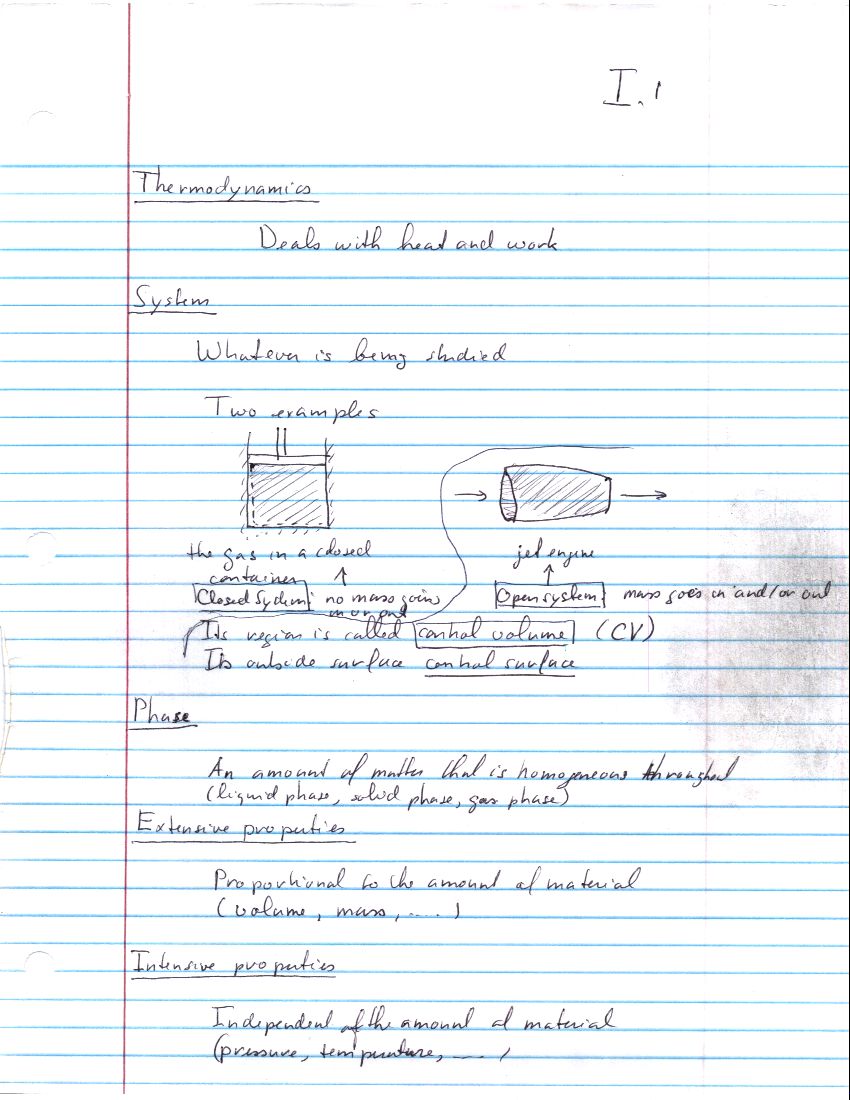 I.1
Thermodynamics
Deals with heat and work
System
Whatever is being studied
Two examples
the gas in a closed
container
jet engine
Closed System no mass goins
in or out
Open system mass goes in and/or out
Its region is called control volume (CV)
Its outside surface control surface
Phase
An amount of matter that is homogeneous throughout
(liquid phase, solid phase, gas phase)
Extensive properties
Proportional to the amount of material
(volume, mass, ....)
Intensive properties
Independent of the amount of material
(pressure, temperature, ....)